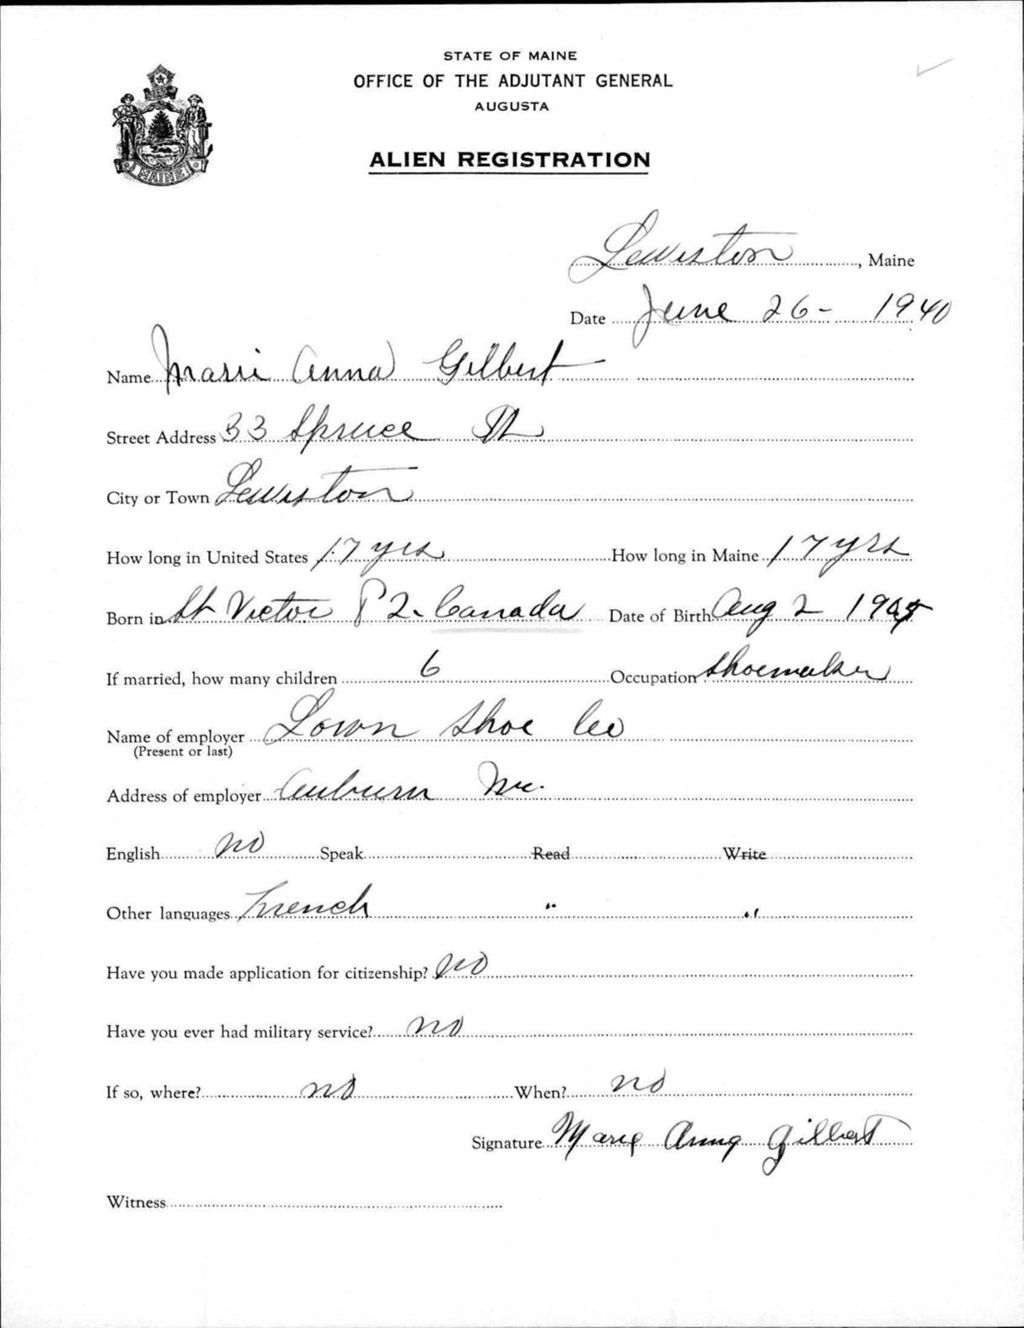 STATE OF MAINE
OFFICE OF THE ADJUTANT GENERAL
AUGUSTA
ALIEN REGISTRATION
MAINE
Lewiston, Maine
Date June 26 - 1940
Name Marie Anna Gilbert
Street Address 33 Spruce St
City or Town Lewiston
How long in United States 17 yrs How long in Maine 17 yrs
Born in St Victor P Q. Canada Date of Birth Aug 2
If married, how many children 6 Occupation Shoemaker
Name of employer Lown Shoe Co
(Present or last)
Address of employer Auburn Me.
English No Speak Read Write
Other languages French " "
Have you made application for citizenship? No
Have you ever had military service? No
If so, where? no When? no
Signature Marie Anna Gilbert
Witness